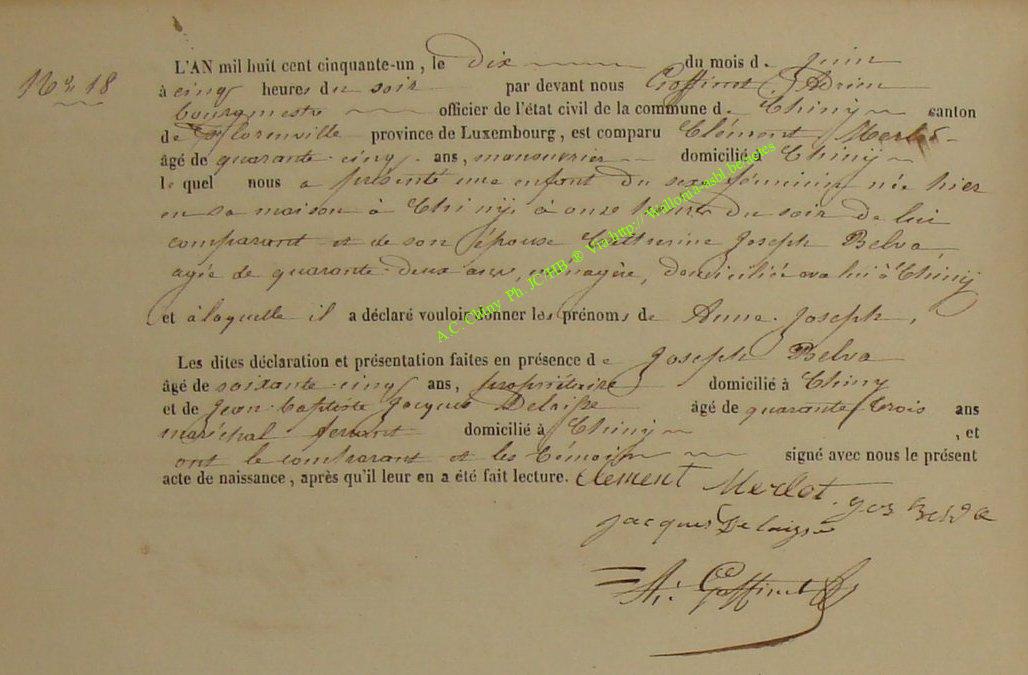 No. 18
L'AN mil huit cent cinquante-un, le dix du mois de Juin
à cinq heures du soir par devant nous Goffinet, Adrien
bourgmestre officier de l'état civil de la commune de Chiny canton
de Florenville province de Luxembourg, est comparu Clément Merlot
âgé de quarante-cinq ans, manouvrier domicilié à Chiny
lequel nous a présenté une enfant du sexe féminin née hier
en sa maison à Chiny à onze heures du soir de lui
comparant et de son épouse Catherine Joseph Belva
agée de quarante-deux ans, ménagère, domiciliée avec lui à Chiny
et à laquelle il a déclaré vouloir donner les prénoms de Anne-Joseph,
Les dites déclaration et présentation faites en présence de Joseph Belva
âgé de soixante-cinq ans, propriétaire domicilié à Chiny
et de Jean-Baptiste Jacques Delaisse âgé de quarante-trois ans
maréchal ferrant domicilié à Chiny , et
ont le comparant et les témoins signé avec nous le présent
acte de naissance, après qu'il leur en a été fait lecture. Clement Merlot. Jos Belva
Jacques Delaisse
A. Goffinet
A.C. Chiny Ph. JC/HB ® Via http://Wallonia-asbl.be/actes